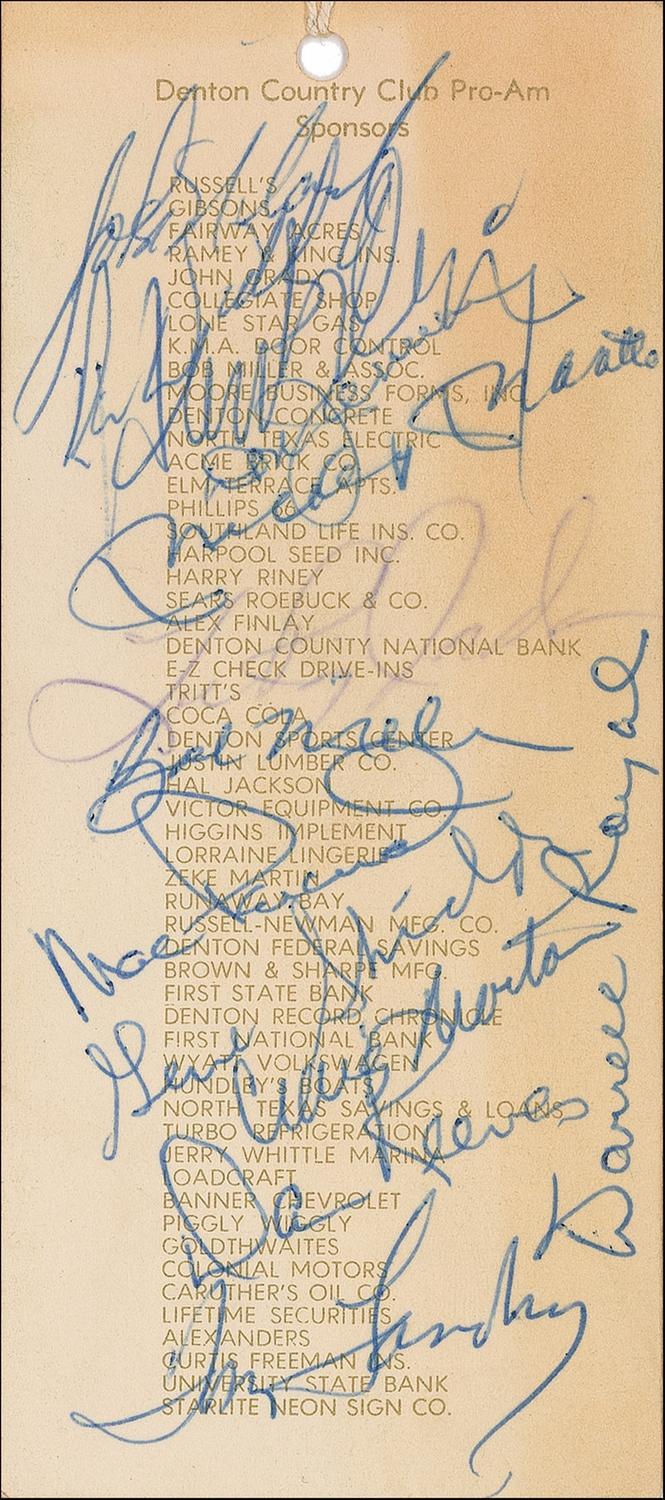 Denton Country Club Pro-Am
Sponsors
RUSSELL'S
GIBSONS
FAIRWAY ACRES
RAMEY & KING INS.
JOHN GRADY
COLLEGIATE SHOP
LONE STAR GAS
K.M.A. DOOR CONTROL
BOB MILLER & ASSOC.
MOORE BUSINESS FORMS, INC.
DENTON CONCRETE
NORTH TEXAS ELECTRIC
ACME BRICK CO.
ELM TERRACE APTS.
PHILLIPS 66
SOUTHLAND LIFE INS. CO.
HARPOOL SEED INC.
HARRY RINEY
SEARS ROEBUCK & CO.
ALEX FINLAY
DENTON COUNTY NATIONAL BANK
E-Z CHECK DRIVE-INS
TRITT'S
COCA COLA
DENTON SPORTS CENTER
JUSTIN LUMBER CO.
HAL JACKSON
VICTOR EQUIPMENT CO.
HIGGINS IMPLEMENT
LORRAINE LINGERIE
ZEKE MARTIN
RUNAWAY BAY
RUSSELL-NEWMAN MFG. CO.
DENTON FEDERAL SAVINGS
BROWN & SHARPE MFG.
FIRST STATE BANK
DENTON RECORD CHRONICLE
FIRST NATIONAL BANK
WYATT VOLKSWAGEN
HUNDLEY'S BOATS
NORTH TEXAS SAVINGS & LOANS
TURBO REFRIGERATION
JERRY WHITTLE MARINA
LOADCRAFT
BANNER CHEVROLET
PIGGLY WIGGLY
GOLDTHWAITES
COLONIAL MOTORS
CARUTHER'S OIL CO.
LIFETIME SECURITIES
ALEXANDERS
CURTIS FREEMAN INS.
UNIVERSITY STATE BANK
STARLITE NEON SIGN CO.
Mickey Mantle
Mac
Gene Shields
Craig Morton
Dan Reeves
Darrell Royal
Tom Landry